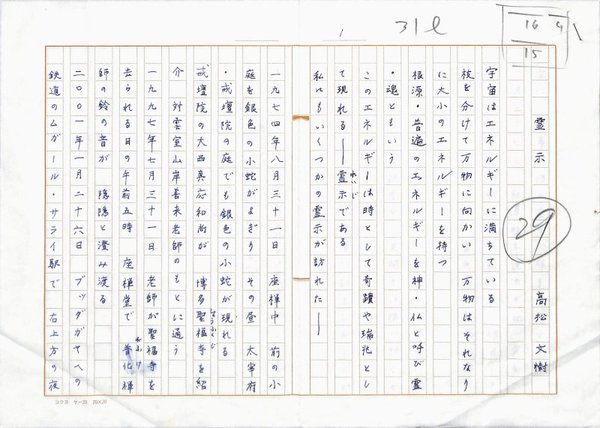 31ℓ
16
4
15
1
霊示
29
高松文樹
宇宙はエネルギーに満ちている
枝を分けて万物に向かい 万物はそれなり
に大小のエネルギーを持つ
根源・普遍のエネルギーを神・仏と呼び霊
・魂ともいう
このエネルギーは時として奇蹟や瑞兆とし
て現れる——霊示である
れいじ
私にもいくつかの霊示が訪れた——
一九七四年八月三十一日 座禅中 前の小
庭を銀色の小蛇がよぎり その昼 太宰府
・戒壇院の庭でも銀色の小蛇が現れる
戒壇院の大西真応和尚が 博多聖福寺を紹
しょうふくじ
介 対雲室山岸善来老師のもとに通う
一九九七年七月三十一日 老師が聖福寺を
去られる日の午前五時 座禅堂で 普化禅
ふけ
師の鈴の音が 隠隠と澄み渡る
二〇〇一年一月二十六日 ブッダガヤへの
鉄道のムガール・サライ駅で 右上方の夜
コクヨ ケー75 20×20